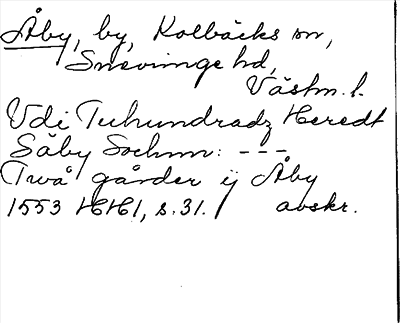 Åby, by, Kolbäcks sn,
Snevringe hd,
Västm. l.
Vdi Tuhundradz Heredt
Säby Sochnn: ---
Två gårder ij Åby
1553 HH1, s. 31. / avskr.